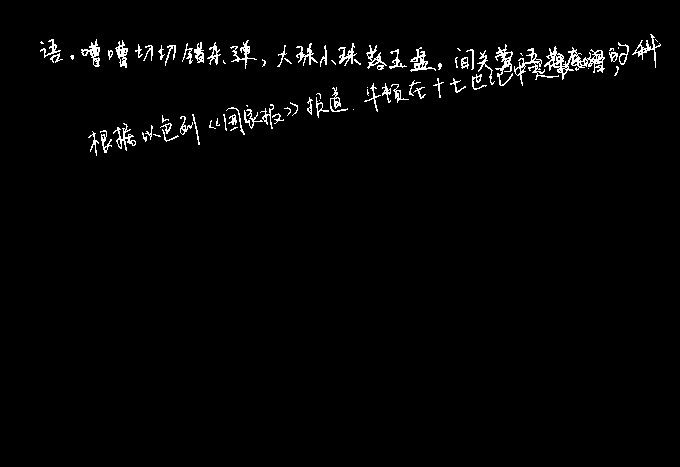 语。嘈嘈切切错杂弹，大珠小珠落玉盘。间关莺语
根据以色列《国家报》报道．牛顿在十七世纪中 的科